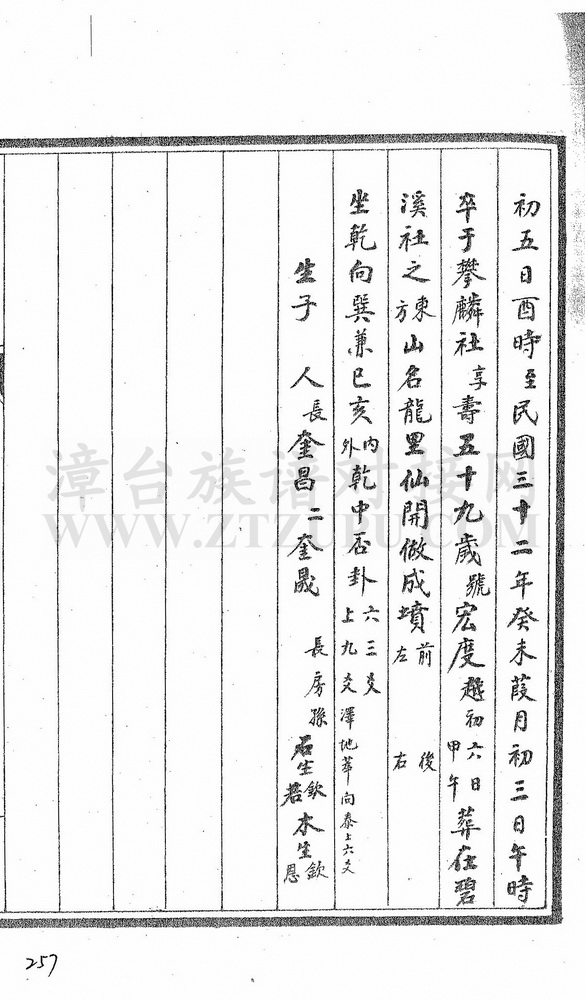 初五日酉時至民國三十二年癸未葭月初三日午時
卒于攀麟社享壽五十九歲號宏度越初六日甲午葬在碧
溪社之東方山名龍里仙開做成墳前左 後右
坐乾向巽兼巳亥內外乾中否卦六三爻上九爻澤地萃向泰上六爻
生子 人長奎昌二奎晟 長房孫石生欽若木生欽恩
漳台族谱对接网
WWW.ZTZUPU.COM
257